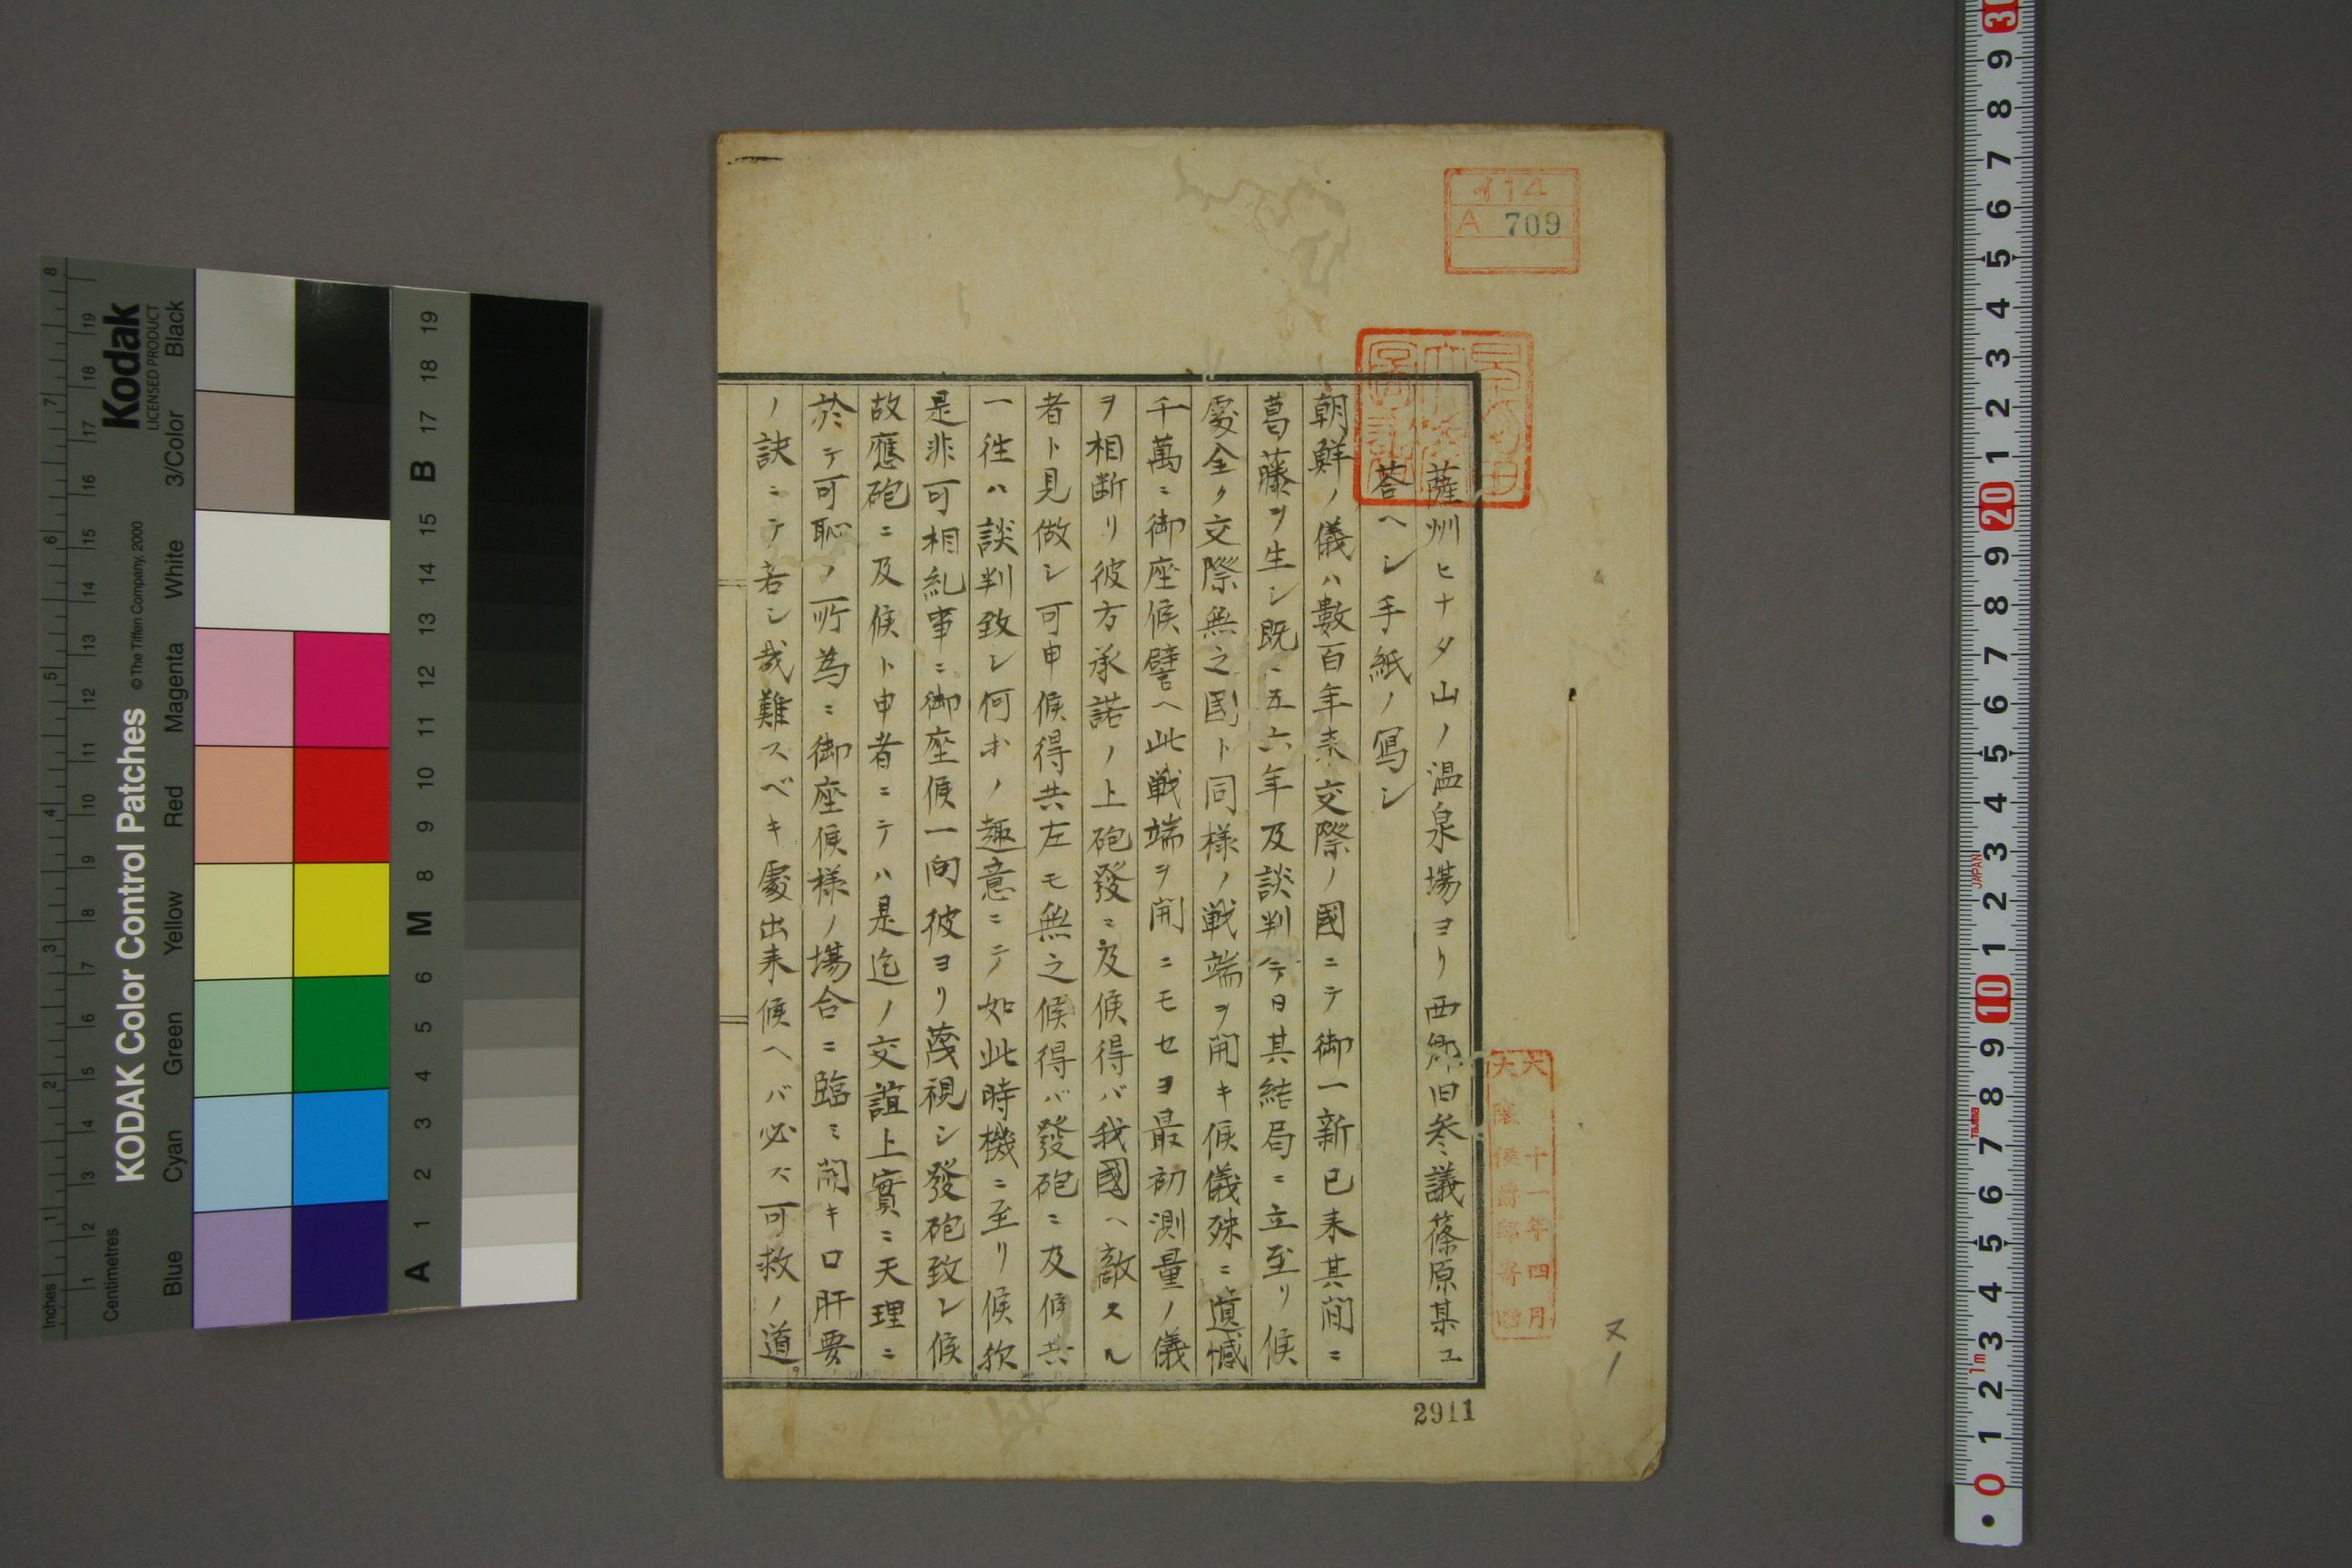 薩州ヒナタ山ノ温泉場ヨリ西郷旧参議篠原某エ
荅ヘシ手紙ノ写シ
朝鮮ノ儀ハ數百年来交際ノ國ニテ御一新已来其間ニ
葛藤ヲ生シ既ニ五六年及談判今日其結局ニ立至リ候
處全ク交際無之国ト同様ノ戦端ヲ開キ候儀殊ニ遺憾
千萬ニ御座候譬ヘ此戦端ヲ開ニモセヨ最初測量ノ儀
ヲ相断リ彼方承諾ノ上砲發ニ及候得バ我國ヘ敵スル
者ト見做シ可申候得共左モ無之候得バ發砲ニ及候共
一往ハ談判致シ何等ノ趣意ニテ如此時機ニ至リ候欤
是非可相糺事ニ御座候一向彼ヨリ蔑視シ發砲致シ候
故應砲ニ及候ト申者ニテハ是迄ノ交誼上實ニ天理ニ
於テ可恥ノ所為ニ御座候様ノ場合ニ臨ミ開キ口肝要
ノ訣ニテ若シ哉難スベキ處出来候ヘバ必ス可救ノ道
イ14
A 709
大正十一年四月
大隈侯爵邸寄贈
2911
KODAK Color Control Patches
© The Tiffen Company, 2000
Kodak
LICENSED PRODUCT
Inches
Centimetres
Blue
Cyan
Green
Yellow
Red
Magenta
White
3/Color
Black
A 1 2 3 4 5 6 M 8 9 10 11 12 13 14 15 B 17 18 19
JAPAN
Tajima
1m